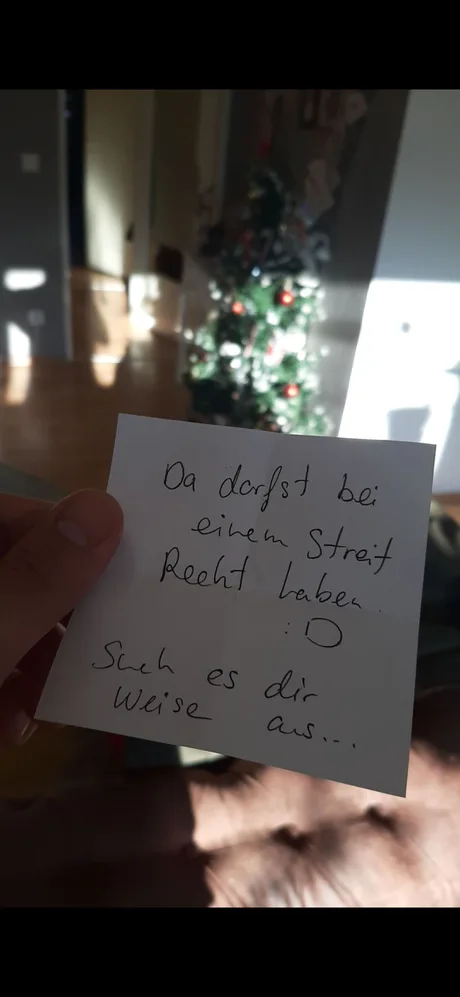 Da darfst bei
einem Streit
Recht haben.
:D
Such es dir
weise aus...